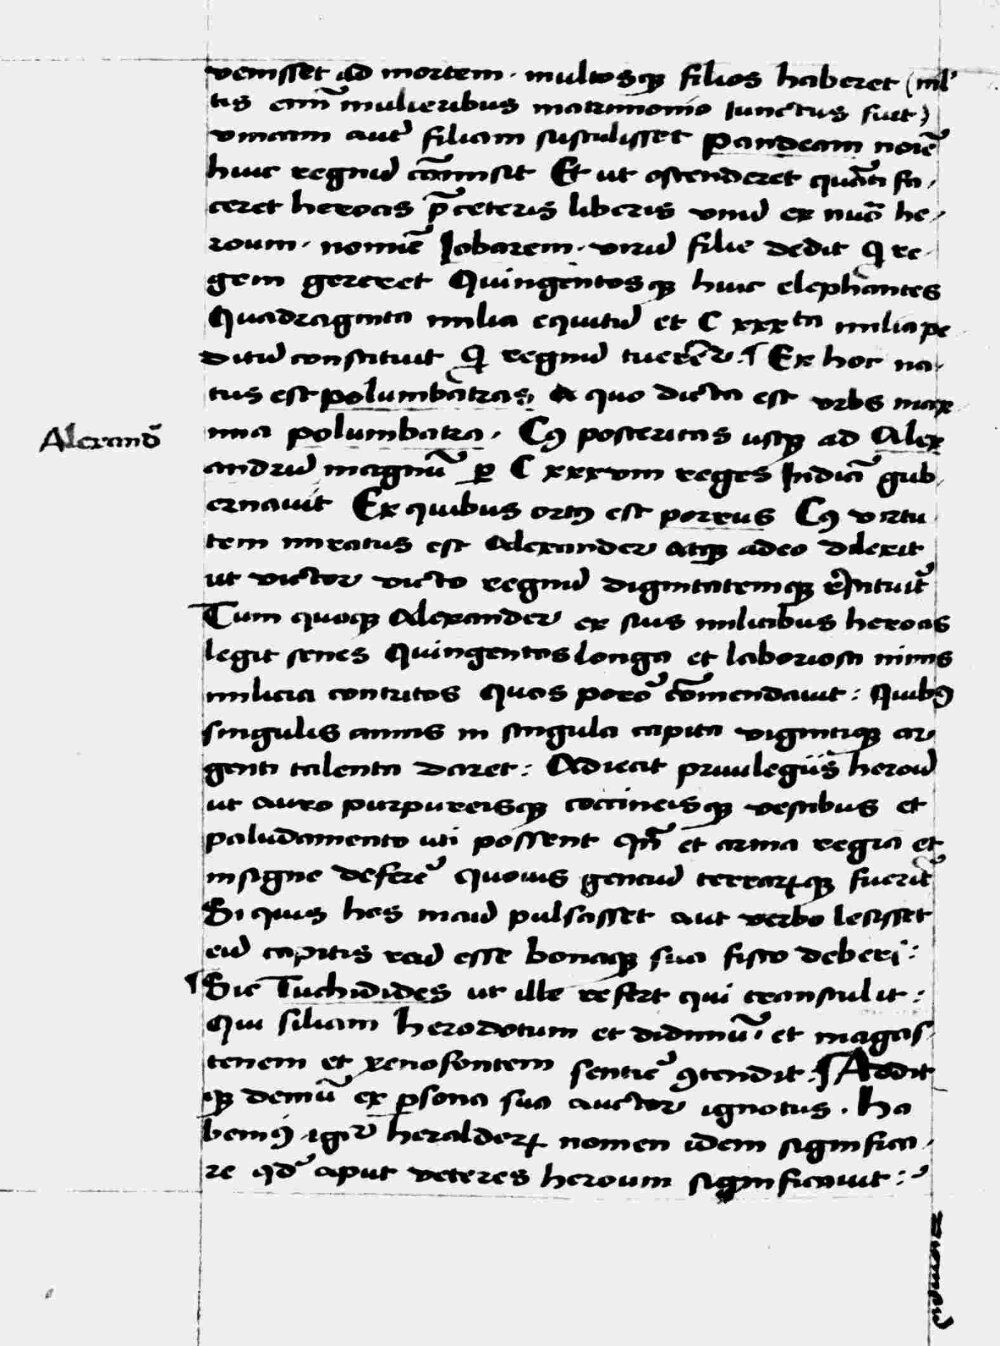 venisset ad mortem · multosq; filios haberet (ml'
tis enī mulieribus matrimonio Iunctus fuit)
vnicam aut' filiam sustulisset Pandeam noīe
huic regnū cōmisit Et ut ostenderet quāti fa-
ceret heroas p̄ ceteris liberis vnū ex nuō he-
roum · nomīe Iobarem · virū filie dedit q̄ re-
gem gereret Quingentosq; huic elephantes
Quadraginta milia equitū et C xxxta milia pe
ditū constituit q̄ regnū tuerēr · ¶ Ex hoc na-
tus est polumbātras, A quo dicta est vrbs max
Alexandō
ima polumbatra · Cꝯ posteritas usq; ad Alex
andrū magnū p̱ C xxxviii reges Indiā gub-
ernavit Ex quibus ortꝯ est porrus Cꝯ virtu
tem miratus est Alexander atq; adeo dilexit
ut victor victo regnū dignitatemq; r̄stituit
Tum quoq; Alexander ex suis militibus heroas
legit senes Quingentos longa et laboriosa nimis
milicia contritos Quos porō cōmendavit : Quibꝯ
singulis annis in singula capita vigintiq; ar
genti talenta daret : Adiecit privilegiis heroū
ut auro purpureisq; coccineisq; vestibus et
paludamento uti possent Qn̄ et arma regia et
insigne deferē quovis genciū terrarꝝq; fuerīt
Si quis hos manū pulsasset aut verbo lesisset
eū capitis reū esse bonaq; sua fisco deberi :
¶ Sic Tuchidides ut ille refert qui transtulit :
Qui siliam herodotum et didimū · et magas
tenem et xenofontem sentīe ꝯtendit : ¶ Addit
q; demū ex ꝑsona sua auctor ignotus · Ha
bemꝯ igir heralderꝝ nomen idem significa-
re qd' aput veteres heroum significavit :